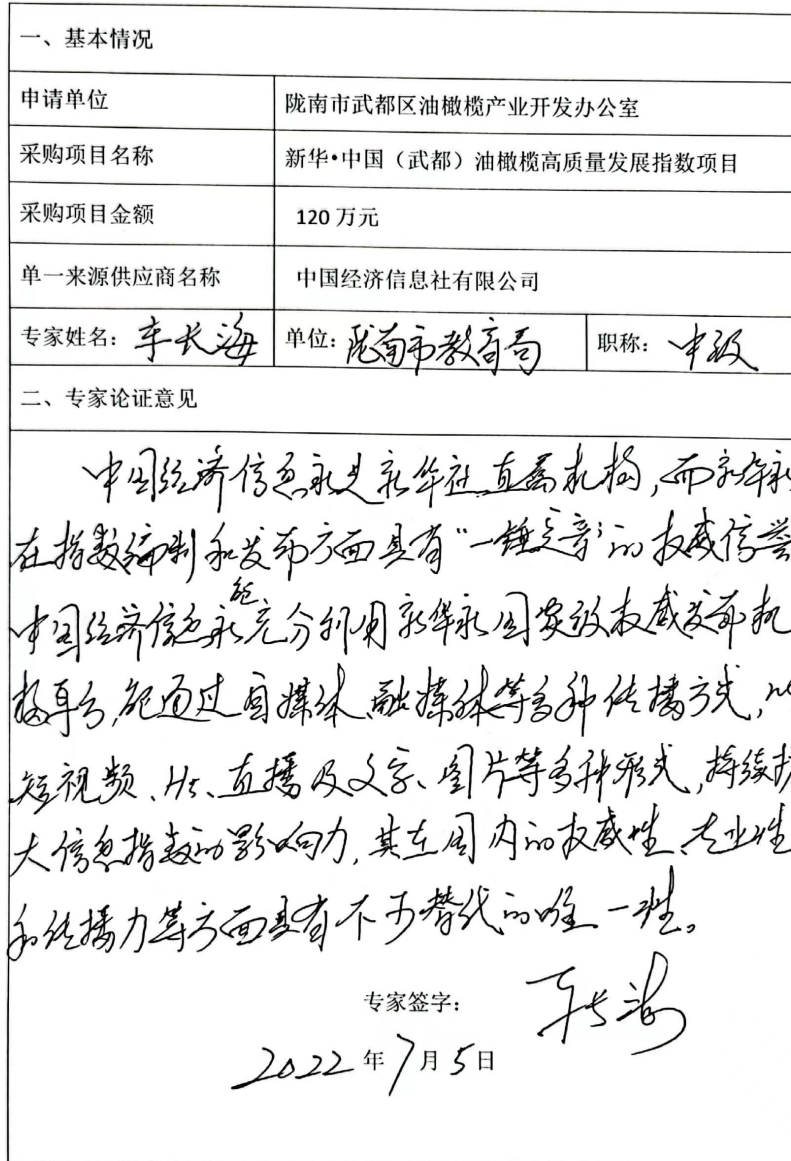 一、基本情况
申请单位 陇南市武都区油橄榄产业开发办公室
采购项目名称 新华•中国（武都）油橄榄高质量发展指数项目
采购项目金额 120 万元
单一来源供应商名称 中国经济信息社有限公司
专家姓名：车长海 单位：陇南市教育局 职称：中级
二、专家论证意见
中国经济信息社是新华社直属机构，而新华社
在指数编制和发布方面具有“一锤定音”的权威信誉
中国经济信息社能充分利用新华社国家级权威发布机
构平台，能通过自媒体、融媒体等多种传播方式，以
短视频、H5、直播及文字、图片等多种形式，持续扩
大信息指数的影响力，其在国内的权威性、专业性
和传播力等方面具有不可替代的唯一性。
专家签字：车长海
2022 年 7 月 5 日